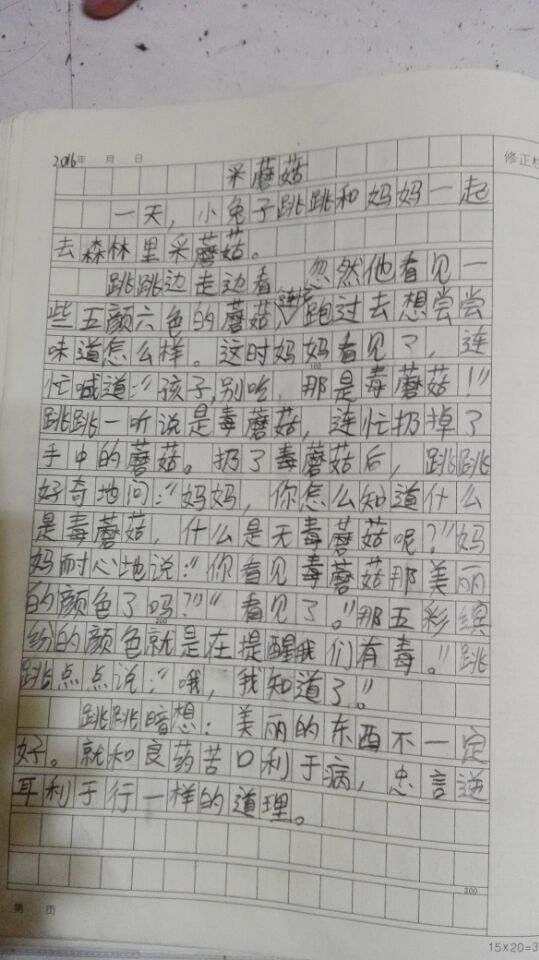 2016年 月 日
修正栏
采蘑菇
一天，小兔子跳跳和妈妈一起
去森林里采蘑菇。
跳跳边走边看 忽然他看见一
些五颜六色的蘑菇，连忙跑过去想尝尝
味道怎么样。这时妈妈看见了，连
100
忙喊道：“孩子，别吃，那是毒蘑菇！”
跳跳一听说是毒蘑菇，连忙扔掉了
手中的蘑菇。扔了毒蘑菇后，跳跳
好奇地问：“妈妈，你怎么知道什么
是毒蘑菇，什么是无毒蘑菇呢？”妈
妈耐心地说：“你看见毒蘑菇那美丽
的颜色了吗？”“看见了。”那五彩缤
200
纷的颜色就是在提醒我们有毒。”跳
跳点点说：“哦，我知道了。”
跳跳暗想：美丽的东西不一定
好。就和良药苦口利于病，忠言逆
耳利于行一样的道理。
300
第 页
15×20=3